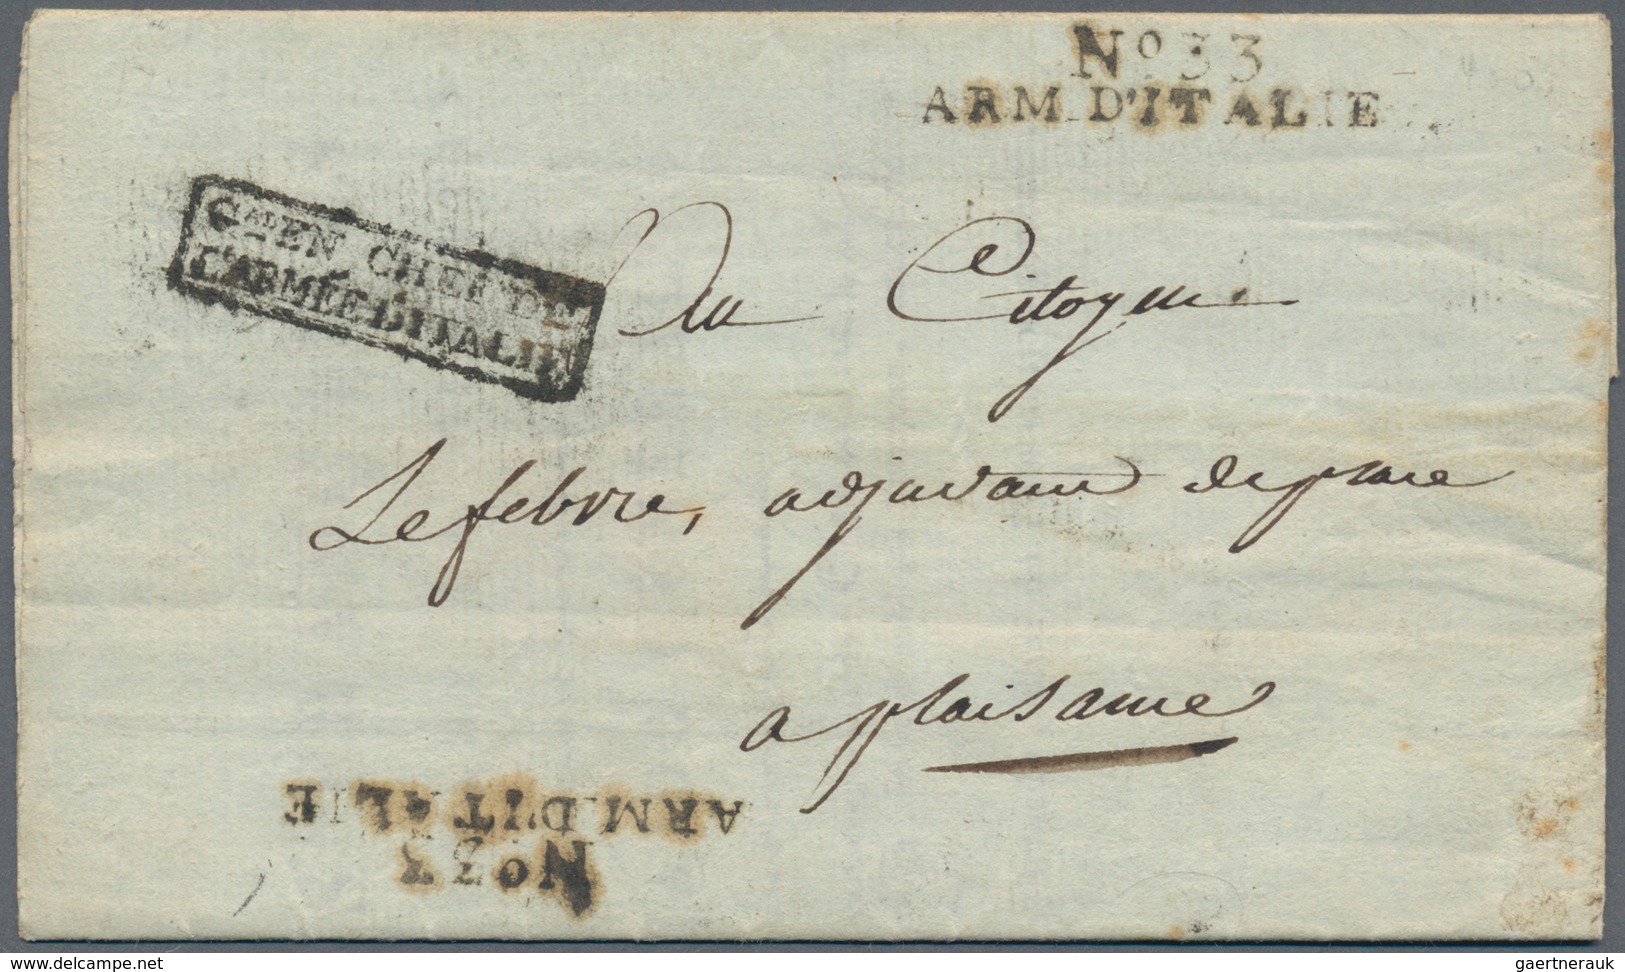 No 33
ARM. D'ITALIE
GAL EN CHEF DE
L'ARMÉE D'ITALIE
Au Citoyen
Lefebvre, adjudant de place
a plaisance
ARM. D'ITALIE
No 33
www.delcampe.net
gaertnerauk